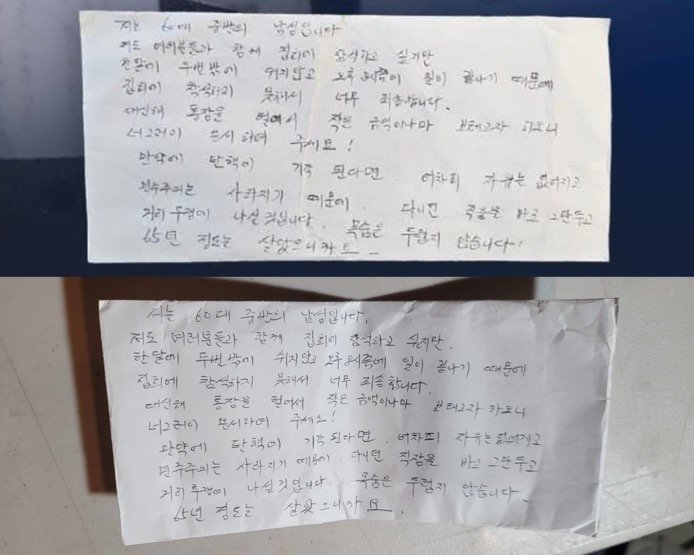 저는 60대 중반의 남성입니다
저도 여러분들과 함께 집회에 참석하고 싶지만
한달에 두번밖에 쉬지않고 오후 8시쯤에 일이 끝나기 때문에
집회에 참석하지 못해서 너무 죄송합니다.
대신해 통장을 털어서 작은 금액이나마 보태고자 하오니
너그러이 용서하여 주세요!
만약에 탄핵이 기각 된다면 어차피 자유는 없어지고
민주주의는 사라지기 때문에. 다니던 직장을 바로 그만두고
거리투쟁에 나설것입니다. 목숨은 두렵지 않습니다!
65년 정도는 살았으니까요
저는 60대 중반의 남성입니다.
저도 여러분들과 함께 집회에 참석하고 싶지만.
한달에 두번밖에 쉬지않고 오후 8시쯤에 일이 끝나기 때문에
집회에 참석하지 못해서 너무 죄송합니다.
대신해 통장을 털어서 작은 금액이나마 보태고자 하오니
너그러이 용서하여 주세요!
만약에 탄핵이 기각된다면. 어차피 자유는 없어지고
민주주의는 사라지기 때문에. 다니던 직장을 바로 그만두고
거리투쟁에 나설것입니다. 목숨은 두렵지 않습니다
65년 정도는 살았으니까요.